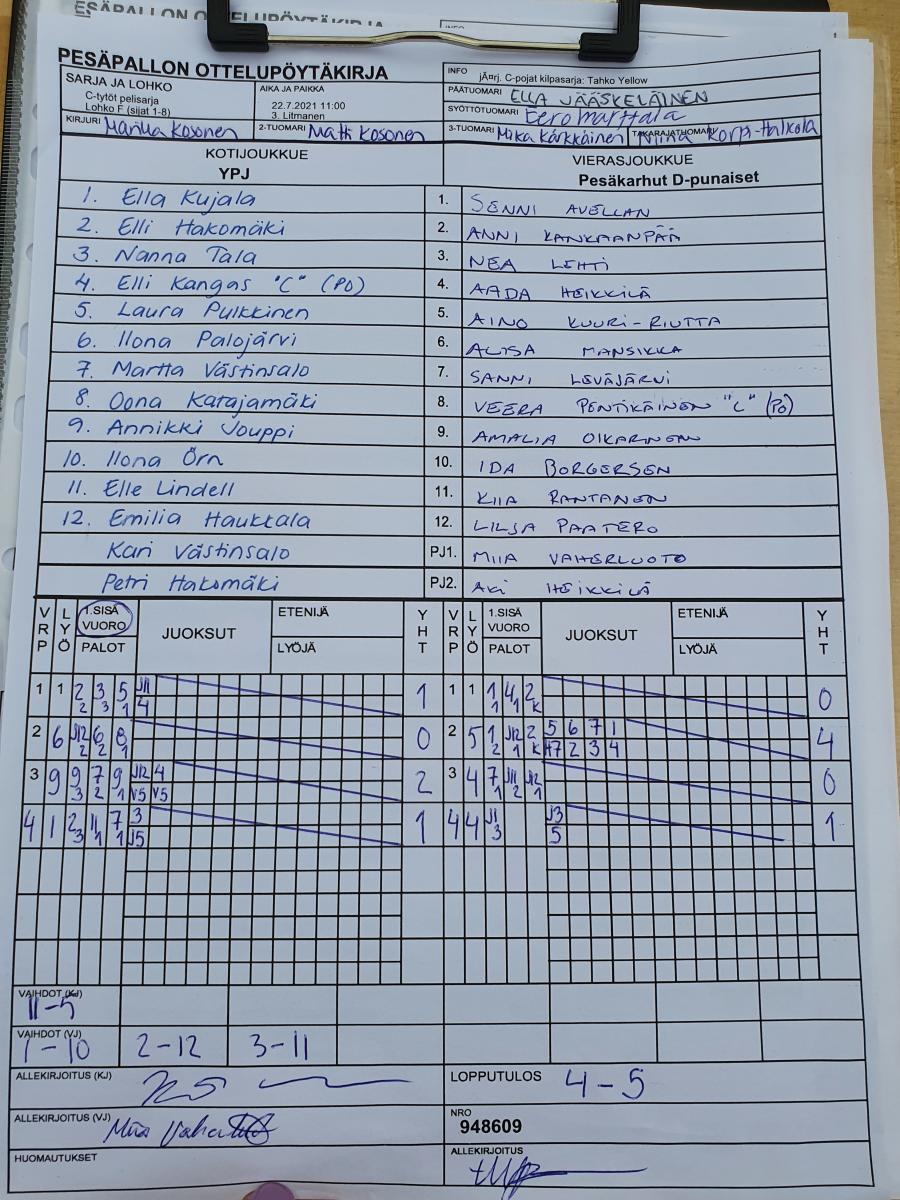 PESÄPALLON OTTELUPÖYTÄKIRJA
SARJA JA LOHKO
C-tytöt pelisarja
Lohko F (sijat 1-8)
AIKA JA PAIKKA
22.7.2021 11:00
3. Litmanen
INFO
jÃ¤rj. C-pojat kilpasarja: Tahko Yellow
PÄÄTUOMARI ELLA JÄÄSKELÄINEN
SYÖTTÖTUOMARI Eero Marttala
KIRJURI Marika Kosonen
2-TUOMARI Matti Kosonen
3-TUOMARI Mika Kärkkäinen
TAKARAJATUOMARI Niina Korpi-Halkola
KOTIJOUKKUE
YPJ
VIERASJOUKKUE
Pesäkarhut D-punaiset
1. Ella Kujala 1. SENNI AVELLAN
2. Elli Hakomäki 2. ANNI KANKAANPÄÄ
3. Nanna Tala 3. NEA LEHTI
4. Elli Kangas "C" (PO) 4. AADA HEIKKILÄ
5. Laura Pulkkinen 5. AINO KUURI-RIUTTA
6. Ilona Palojärvi 6. ALISA MANSIKKA
7. Martta Västinsalo 7. SANNI LEVÄJÄRVI
8. Oona Katajamäki 8. VEERA PENTIKÄINEN "C" (PO)
9. Annikki Jouppi 9. AMALIA OIKARINEN
10. Ilona Örn 10. IDA BORGERSEN
11. Elle Lindell 11. KIIA RANTANEN
12. Emilia Haukkala 12. LILJA PAATERO
Kari Västinsalo PJ1. MIIA VAHERLUOTO
Petri Hakomäki PJ2. AKI HEIKKILÄ
VRP LYÖ 1.SISÄ VUORO PALOT JUOKSUT ETENIJÄ LYÖJÄ YHT VRP LYÖ 1.SISÄ VUORO PALOT JUOKSUT ETENIJÄ LYÖJÄ YHT
1 1 2 3 5 J11 1 1 1 1 4 2 0
2 3 1 4 1 1 K
2 6 J12 6 8 0 2 5 1 J12 2 5 6 7 1 4
2 2 1 2 1 K H7 2 3 4
3 9 9 7 9 J12 4 2 3 4 7 J11 J12 0
3 2 1 V5 V5 1 2 1
4 1 2 11 7 3 1 4 4 J1 J3 1
3 1 1 J5 3 5
VAIHDOT (KJ)
11-5
VAIHDOT (VJ)
1-10 2-12 3-11
ALLEKIRJOITUS (KJ)
LOPPUTULOS 4-5
ALLEKIRJOITUS (VJ) Miia
NRO
948609
HUOMAUTUKSET
ALLEKIRJOITUS